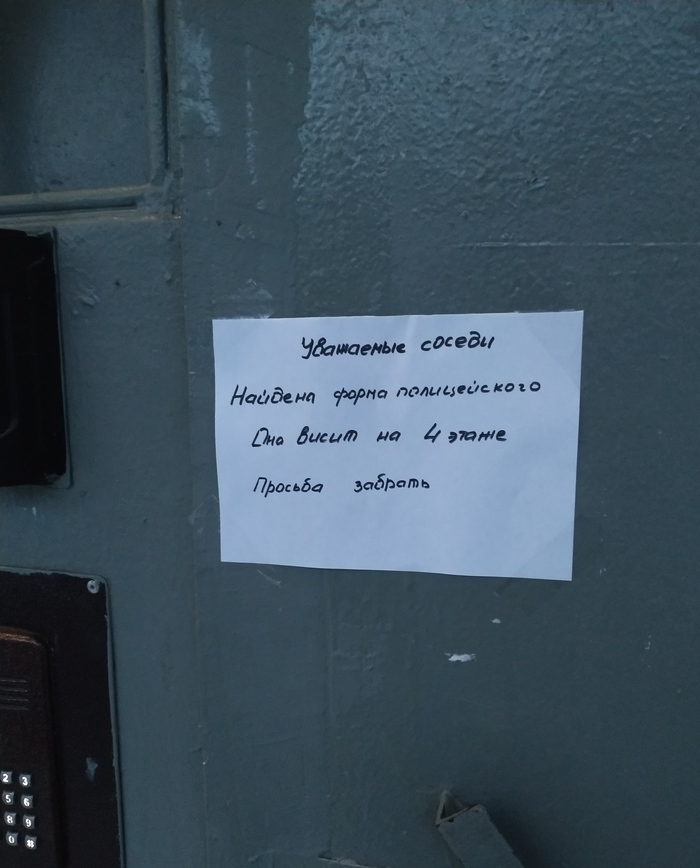 Уважаемые соседи
Найдена форма полицейского
Она висит на 4 этаже
Просьба забрать
2 3
5 6
8 9
0 #